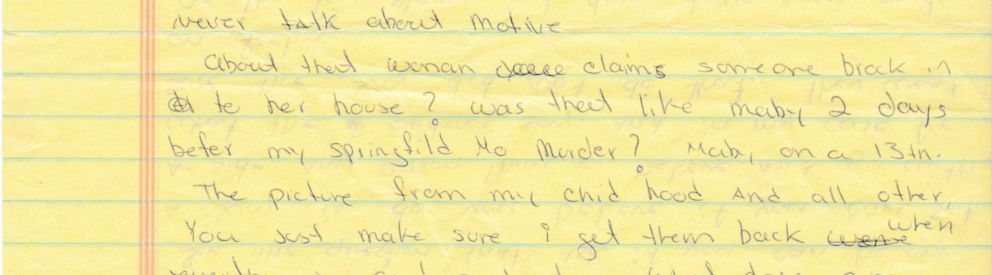 never talk about motive
About that woman claims someone brock in
te her house? was that like maby 2 days
befer my springfild Mo Murder? Maby on a 13th.
The picture from my chid hood And all other,
You Just make sure i get them back when